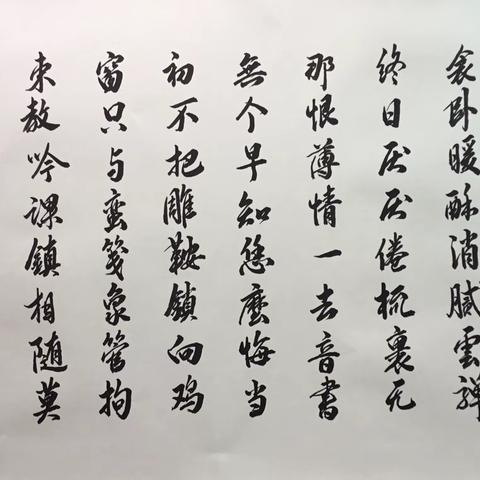 衾卧暖酥消膩雲亸
终日厌厌倦梳裹无
那恨薄情一去音書
無个早知恁麼悔当
初不把雕鞍鎖向鸡
窗只与蛮笺象管拘
束教吟课鎮相随莫